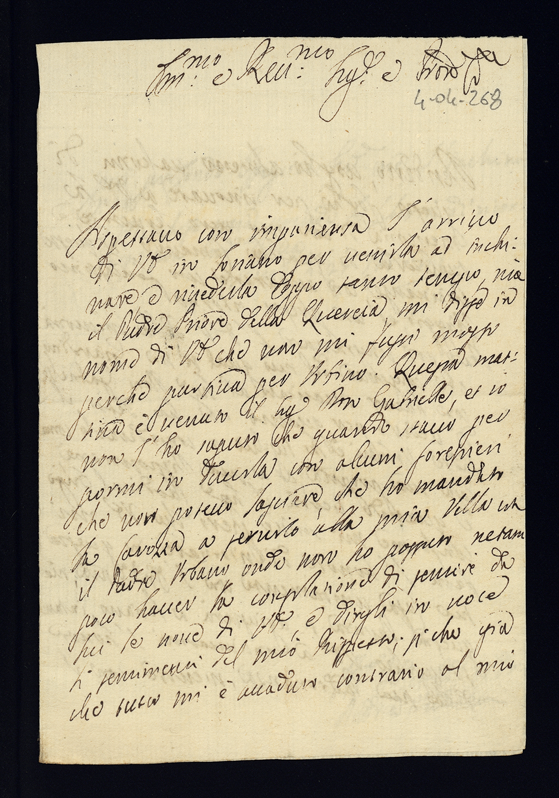 Ill.mo e Rev.mo Sig.r e Pron
4-04-268
Aspettavo con impazienza l'arrivo
di VS in Soriano per venirla ad inchi-
nare e riuederla doppo tanto tempo, ma
il Padre Priore della Quercia mi disse in
nome di VS che non mi fussi mosso
perche partiva per Urbino. Questa mat-
tina è venuto il Sig. Don Gabrielle, et io
non l'ho saputo che quando stavo per
pormi in tavola con alcuni forestieri
che non potevo lasciare che ho mandato
la a servirlo alla mia Villa con
il Padre Urbano onde non ho possuto
poco haver la consolatione di sentire da
lui le nove di VS e dirgli in voce
li sentimenti del mio rispetto; si che già
che tutto mi è accaduto contrario al mio